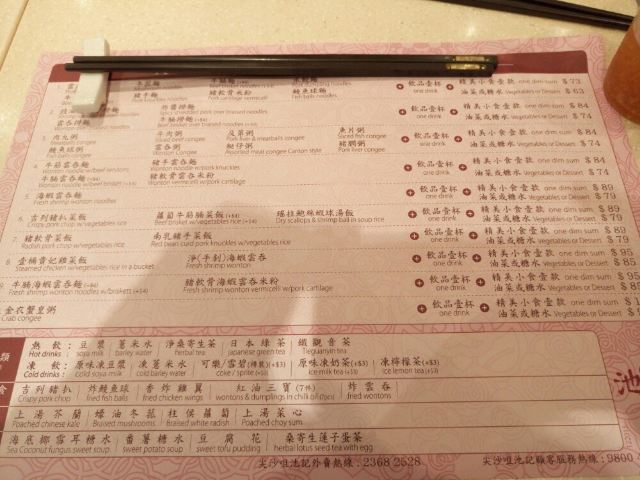 豬手麵
Pork knuckles noodles
豬軟骨米粉
Pork cartilage vermicelli
鮮魚球麵
Fish balls noodles
飲品壹杯
one drink
精美小食壹款 one dim sum $ 73
油菜或糖水 Vegetables or Dessert $ 63
炸醬撈麵
Spicy shredded pork over tresses noodles
牛腩撈麵
Beef brisket over tresses noodles
飲品壹杯
one drink
精美小食壹款 one dim sum $ 84
油菜或糖水 Vegetables or Dessert $ 74
雲吞撈麵
肉丸粥
Meatballs congee
牛肉粥
Sliced beef congee
及第粥
Pork liver & meatballs congee
魚片粥
Sliced fish congee
鯪魚球粥
Fish balls congee
雲吞粥
Wonton Congee
艇仔粥
Assorted meat congee Canton style
豬膶粥
Pork liver congee
飲品壹杯
one drink
精美小食壹款 one dim sum $ 84
油菜或糖水 Vegetables or Dessert $ 74
4. 牛筋雲吞麵
Wonton noodle w/beef tendon
豬手雲吞麵
Wonton noodle w/pork knuckles
牛腩雲吞麵
Wonton noodle w/beef brisket
豬軟骨雲吞米粉
Wonton vermicelli w/pork cartilage
飲品壹杯
one drink
精美小食壹款 one dim sum $ 84
油菜或糖水 Vegetables or Dessert $ 74
海蝦雲吞麵
Fresh shrimp wonton noodles
飲品壹杯
one drink
精美小食壹款 one dim sum $ 89
油菜或糖水 Vegetables or Dessert $ 79
6. 吉列豬扒菜飯
Crispy pork chop w/vegetables rice
蘿蔔牛筋腩菜飯(+$4)
Beef brisket w/vegetables rice (+$4)
瑤柱鮑絲蝦球湯飯
Dry scallops & shrimp ball in soup rice
飲品壹杯
one drink
精美小食壹款 one dim sum $ 89
油菜或糖水 Vegetables or Dessert $ 79
7. 豬軟骨菜飯
Radish pork chop w/vegetables rice
南乳豬手菜飯
Red bean curd pork knuckles w/vegetables rice
飲品壹杯
one drink
精美小食壹款 one dim sum $ 89
油菜或糖水 Vegetables or Dessert $ 79
8. 壹桶貴妃雞菜飯
Steamed chicken w/vegetables rice in a bucket
淨(手剝)海蝦雲吞
Fresh shrimp wonton
飲品壹杯
one drink
精美小食壹款 one dim sum $ 95
油菜或糖水 Vegetables or Dessert $ 85
9. 牛腩海蝦雲吞麵(+$4)
Fresh shrimp wonton noodles w/briskets (+$4)
豬軟骨海蝦雲吞米粉
Fresh shrimp wonton vermicelli w/pork cartilage
飲品壹杯
one drink
精美小食壹款 one dim sum
油菜或糖水 Vegetables or Dessert
金衣蟹皇粥
Crab congee
飲品壹杯
one drink
精美小食壹款 one dim sum
油菜或糖水 Vegetables or Dessert
類
熱 飲: 豆漿 薏米水 淨桑寄生茶 日本綠茶 鐵觀音茶
Hot drinks: soya milk barley water herbal tea japanese green tea Tieguanyin tea
凍 飲: 原味凍豆漿 凍薏米水 可樂/雪碧(樽裝)(+$3) 原味凍奶茶(+$3) 凍檸檬茶(+$3)
Cold drinks: cold soya milk cold barley water coke / sprite (+$3) ice milk tea (+$3) ice lemon tea (+$3)
食
吉列豬扒 炸鯪魚球 香炸雞翼 紅油三寶(7件) 炸雲吞
Crispy pork chop fried fish balls fried chicken wings wontons & dumplings in chili oil (7pcs) fried wontons
上湯芥蘭 蠔油冬菇 柱侯蘿蔔 上湯菜心
Poached chinese kale Braised mushrooms Braised white radish Poached choy sum
海底椰雪耳糖水 番薯糖水 豆腐花 桑寄生蓮子蛋茶
Sea Coconut fungus sweet soup sweet potato soup sweet tofu pudding herbal lotus seed tea with egg
池
尖沙咀池記外賣熱線: 2368 2528
尖沙咀池記顧客服務熱線: 9800